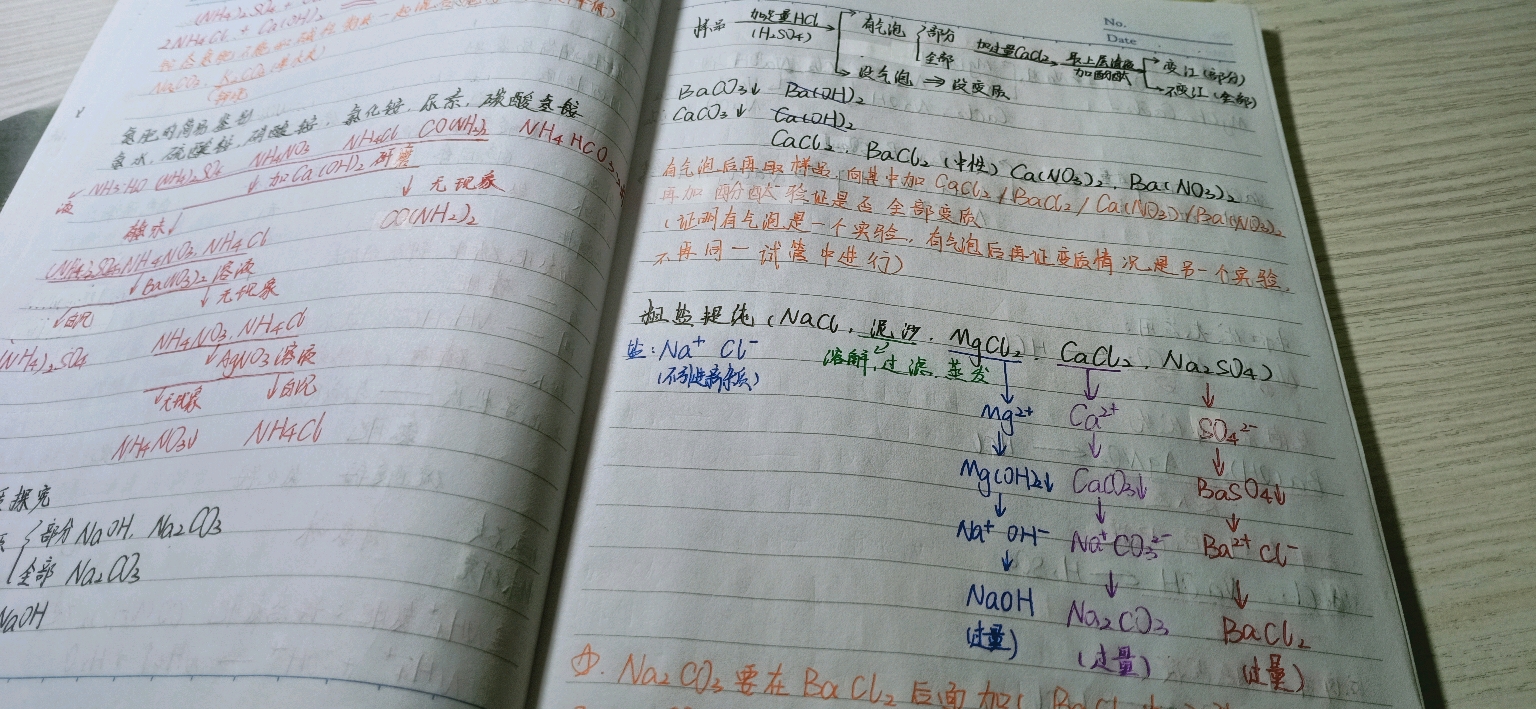 2NH4Cl + Ca(OH)2
氨肥的简易鉴别
氨水、硫酸铵、硝酸铵、氯化铵、尿素、碳酸氢铵
NH3·H2O (NH4)2SO4 NH4NO3 NH4Cl CO(NH2)2 NH4HCO3
↓加Ca(OH)2研磨
↓无现象
CO(NH2)2
(NH4)2SO4 NH4NO3、NH4Cl
↓Ba(NO3)2溶液
↓白沉 ↓无现象
(NH4)2SO4 NH4NO3、NH4Cl
↓AgNO3溶液
↓无现象 ↓白沉
NH4NO3 NH4Cl
探究
部分 NaOH、Na2CO3
全部 Na2CO3
NaOH
No.
Date
样品 加足量HCl (H2SO4) 有气泡 部分 全部 加过量CaCl2 取上层清液 加酚酞 变红(部分) 不变红(全部)
没气泡 ⇒ 没变质
BaCO3↓ Ba(OH)2
CaCO3↓ Ca(OH)2
CaCl2、BaCl2(中性) Ca(NO3)2、Ba(NO3)2
有气泡后再取样品,向其中加CaCl2/BaCl2/Ca(NO3)2/Ba(NO3)2
再加酚酞验证是否全部变质
(证明有气泡是一个实验,有气泡后再证变质情况是另一个实验,
不再同一试管中进行)
粗盐提纯(NaCl、泥沙、MgCl2、CaCl2、Na2SO4)
盐:Na+ Cl- 溶解、过滤、蒸发
(不引进新杂质)
Mg2+ Ca2+ SO42-
Mg(OH)2↓ CaCO3↓ BaSO4↓
Na+ OH- Na+ CO32- Ba2+ Cl-
NaOH Na2CO3 BaCl2
(过量) (过量) (过量)
Na2CO3要在BaCl2后面加